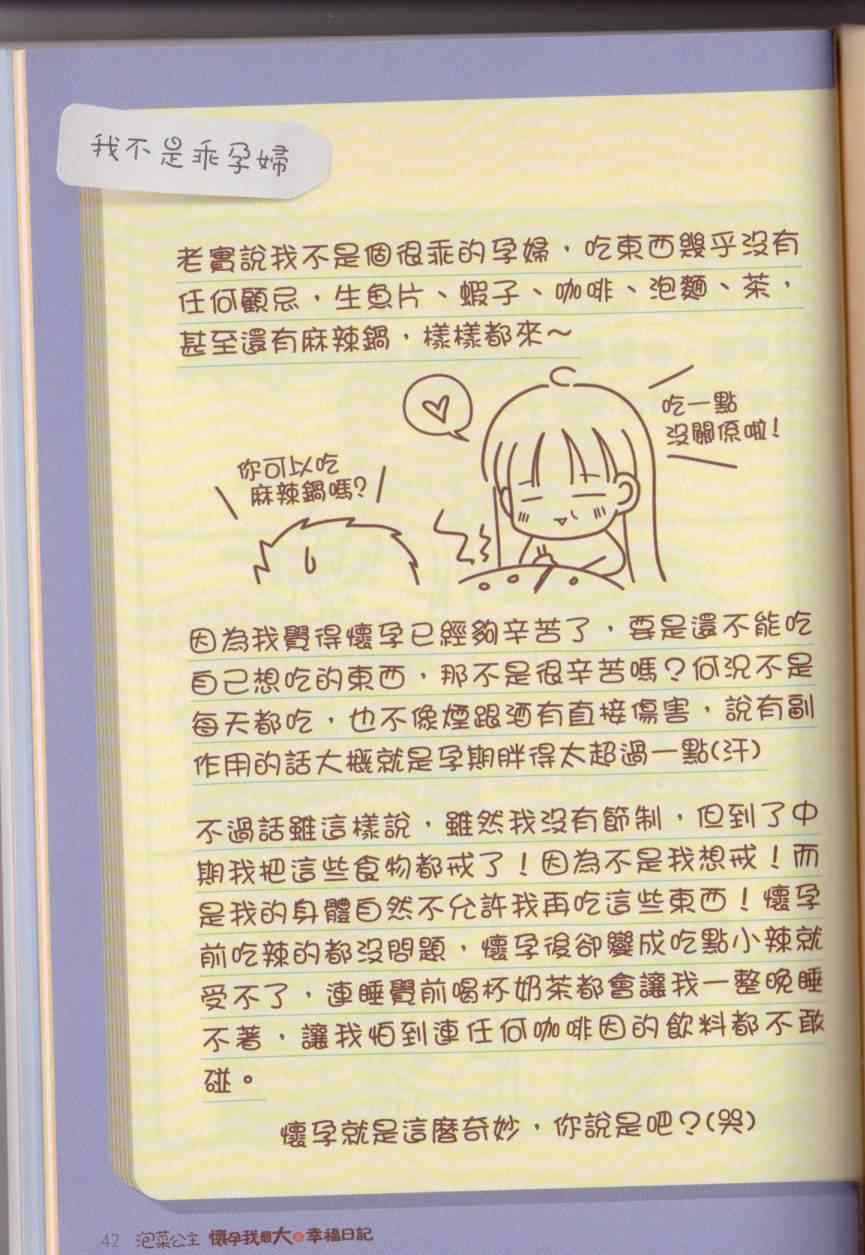 我不是乖孕婦
老實說我不是個很乖的孕婦，吃東西幾乎沒有
任何顧忌，生魚片、蝦子、咖啡、泡麵、茶，
甚至還有麻辣鍋，樣樣都來～
吃一點
沒關係啦！
你可以吃
麻辣鍋嗎？
因為我覺得懷孕已經夠辛苦了，要是還不能吃
自己想吃的東西，那不是很辛苦嗎？何況不是
每天都吃，也不像煙跟酒有直接傷害，說有副
作用的話大概就是孕期胖得太超過一點(汗)
不過話雖這樣說，雖然我沒有節制，但到了中
期我把這些食物都戒了！因為不是我想戒！而
是我的身體自然不允許我再吃這些東西！懷孕
前吃辣的都沒問題，懷孕後卻變成吃點小辣就
受不了，連睡覺前喝杯奶茶都會讓我一整晚睡
不著，讓我怕到連任何咖啡因的飲料都不敢
碰。
懷孕就是這麼奇妙，你說是吧？(哭)
42 泡菜公主 懷孕我最大の幸福日記